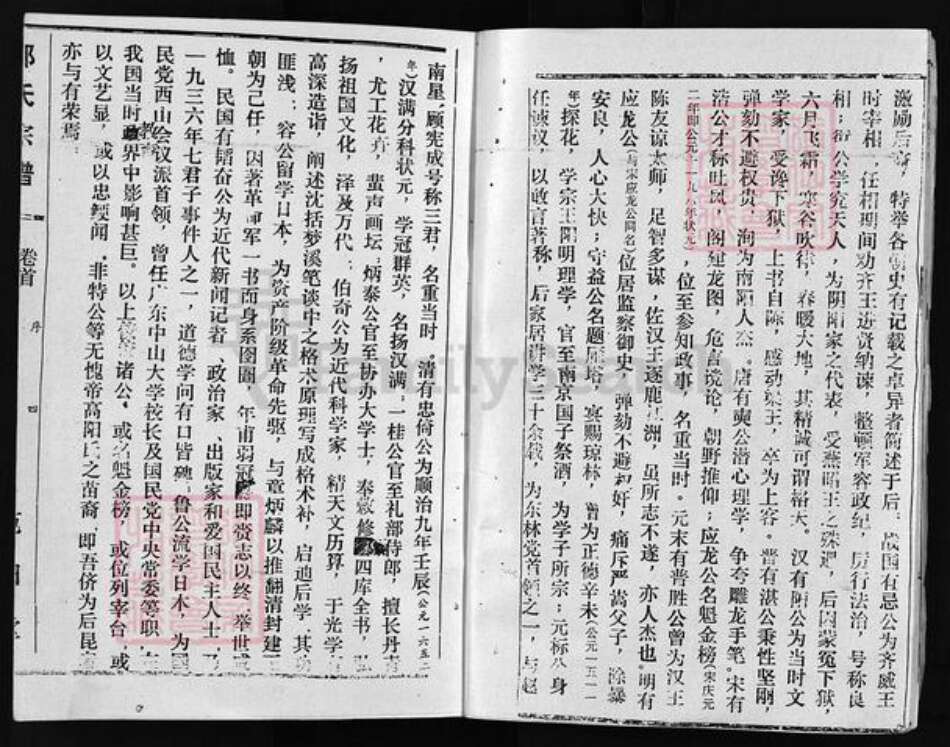 激励后裔，特举各朝史有记载之卓异者简述于后：战国有忌公为齐威王
时宰相，任相期间劝齐王进贤纳谏，整顿军容政纪，厉行法治，号称良
相；衍公学究天人，为阴阳家之代表，受燕昭王之殊遇，后因蒙冤下狱，
六月飞霜，寒谷吹律，春暖大地，其精诚可谓格天。汉有阳公为当时文
学家，受谗下狱，上书自陈，感动梁王，卒为上客。晋有湛公秉性坚刚，
弹劾不避权贵，洵为南阳人杰。唐有奭公潜心理学，争夸雕龙手笔。宋有
浩公才称吐凤，阁建龙图，危言谠论，朝野推仰；应龙公名魁金榜（宋庆元
二年即公元一一九六年状元），位至参知政事，名重当时。元末有普胜公曾为汉王
陈友谅太师，足智多谋，佐汉王逐鹿江洲，虽所志不遂，亦人杰也。明有
应龙公（与宋应龙公同名）位居监察御史，弹劾不避权奸，痛斥严嵩父子，除暴
安良，人心大快；守益公名题雁塔，宴赐琼林，曾为正德辛未（公元一五一一
年）探花，学宗王阳明理学，官至南京国子祭酒，为学子所宗；元标公身
任谏议，以敢言著称，后家居讲学三十余载，为东林党首领之一，与赵
南星、顾宪成号称三君，名重当时。清有忠倚公为顺治九年壬辰（公元一六五二
年）汉满分科状元，学冠群英，名扬汉满；一桂公官至礼部侍郎，擅长丹青
，尤工花卉，蜚声画坛；炳泰公官至协办大学士，奉敕修四库全书，弘
扬祖国文化，泽及万代；伯奇公为近代科学家，精天文历算，于光学
高深造诣，阐述沈括梦溪笔谈中之格术原理写成格术补，启迪后学，其功
匪浅；容公留学日本，为资产阶级革命先驱，与章炳麟以推翻清封建
朝为己任，因著革命军一书而身系图圄，年甫弱冠即赍志以终，举世
恤。民国有韬奋公为近代新闻记者、政治家、出版家和爱国民主人士，
一九三六年七君子事件人之一，道德学问有口皆碑。鲁公流学日本，为国
民党西山会议派首领，曾任广东中山大学校长及国民党中央常委等职，在
我国当时教界中影响甚巨。以上诸公，或名魁金榜，或位列宰台，或
以文艺显，或以忠鲠闻，非特公等无愧帝高阳氏之苗裔，即吾侪为后昆者
亦与有荣焉。
氏宗谱
卷首
序
四
FamilySearch